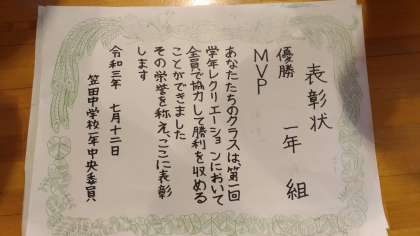 表彰状
優勝 一年 組
MVP
あなたたちのクラスは、第一回
学年レクリエーションにおいて
全員で協力して勝利を収める
ことができました
その栄誉を称え、ここに表彰
します
令和三年 七月十二日
笠田中学校一年中央委員